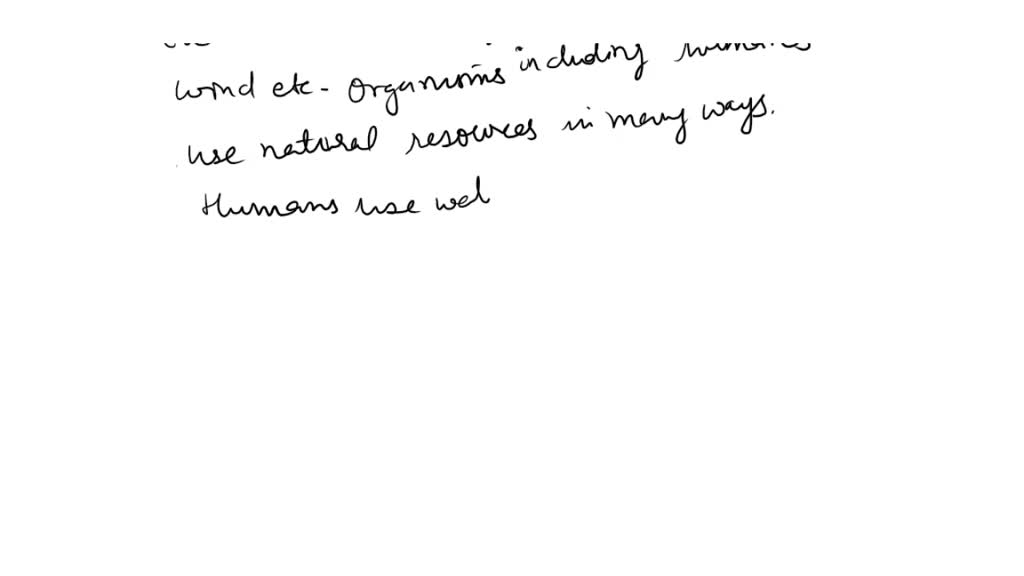 wind etc - organisms including humans
use natural resources in many ways.
Humans use wel